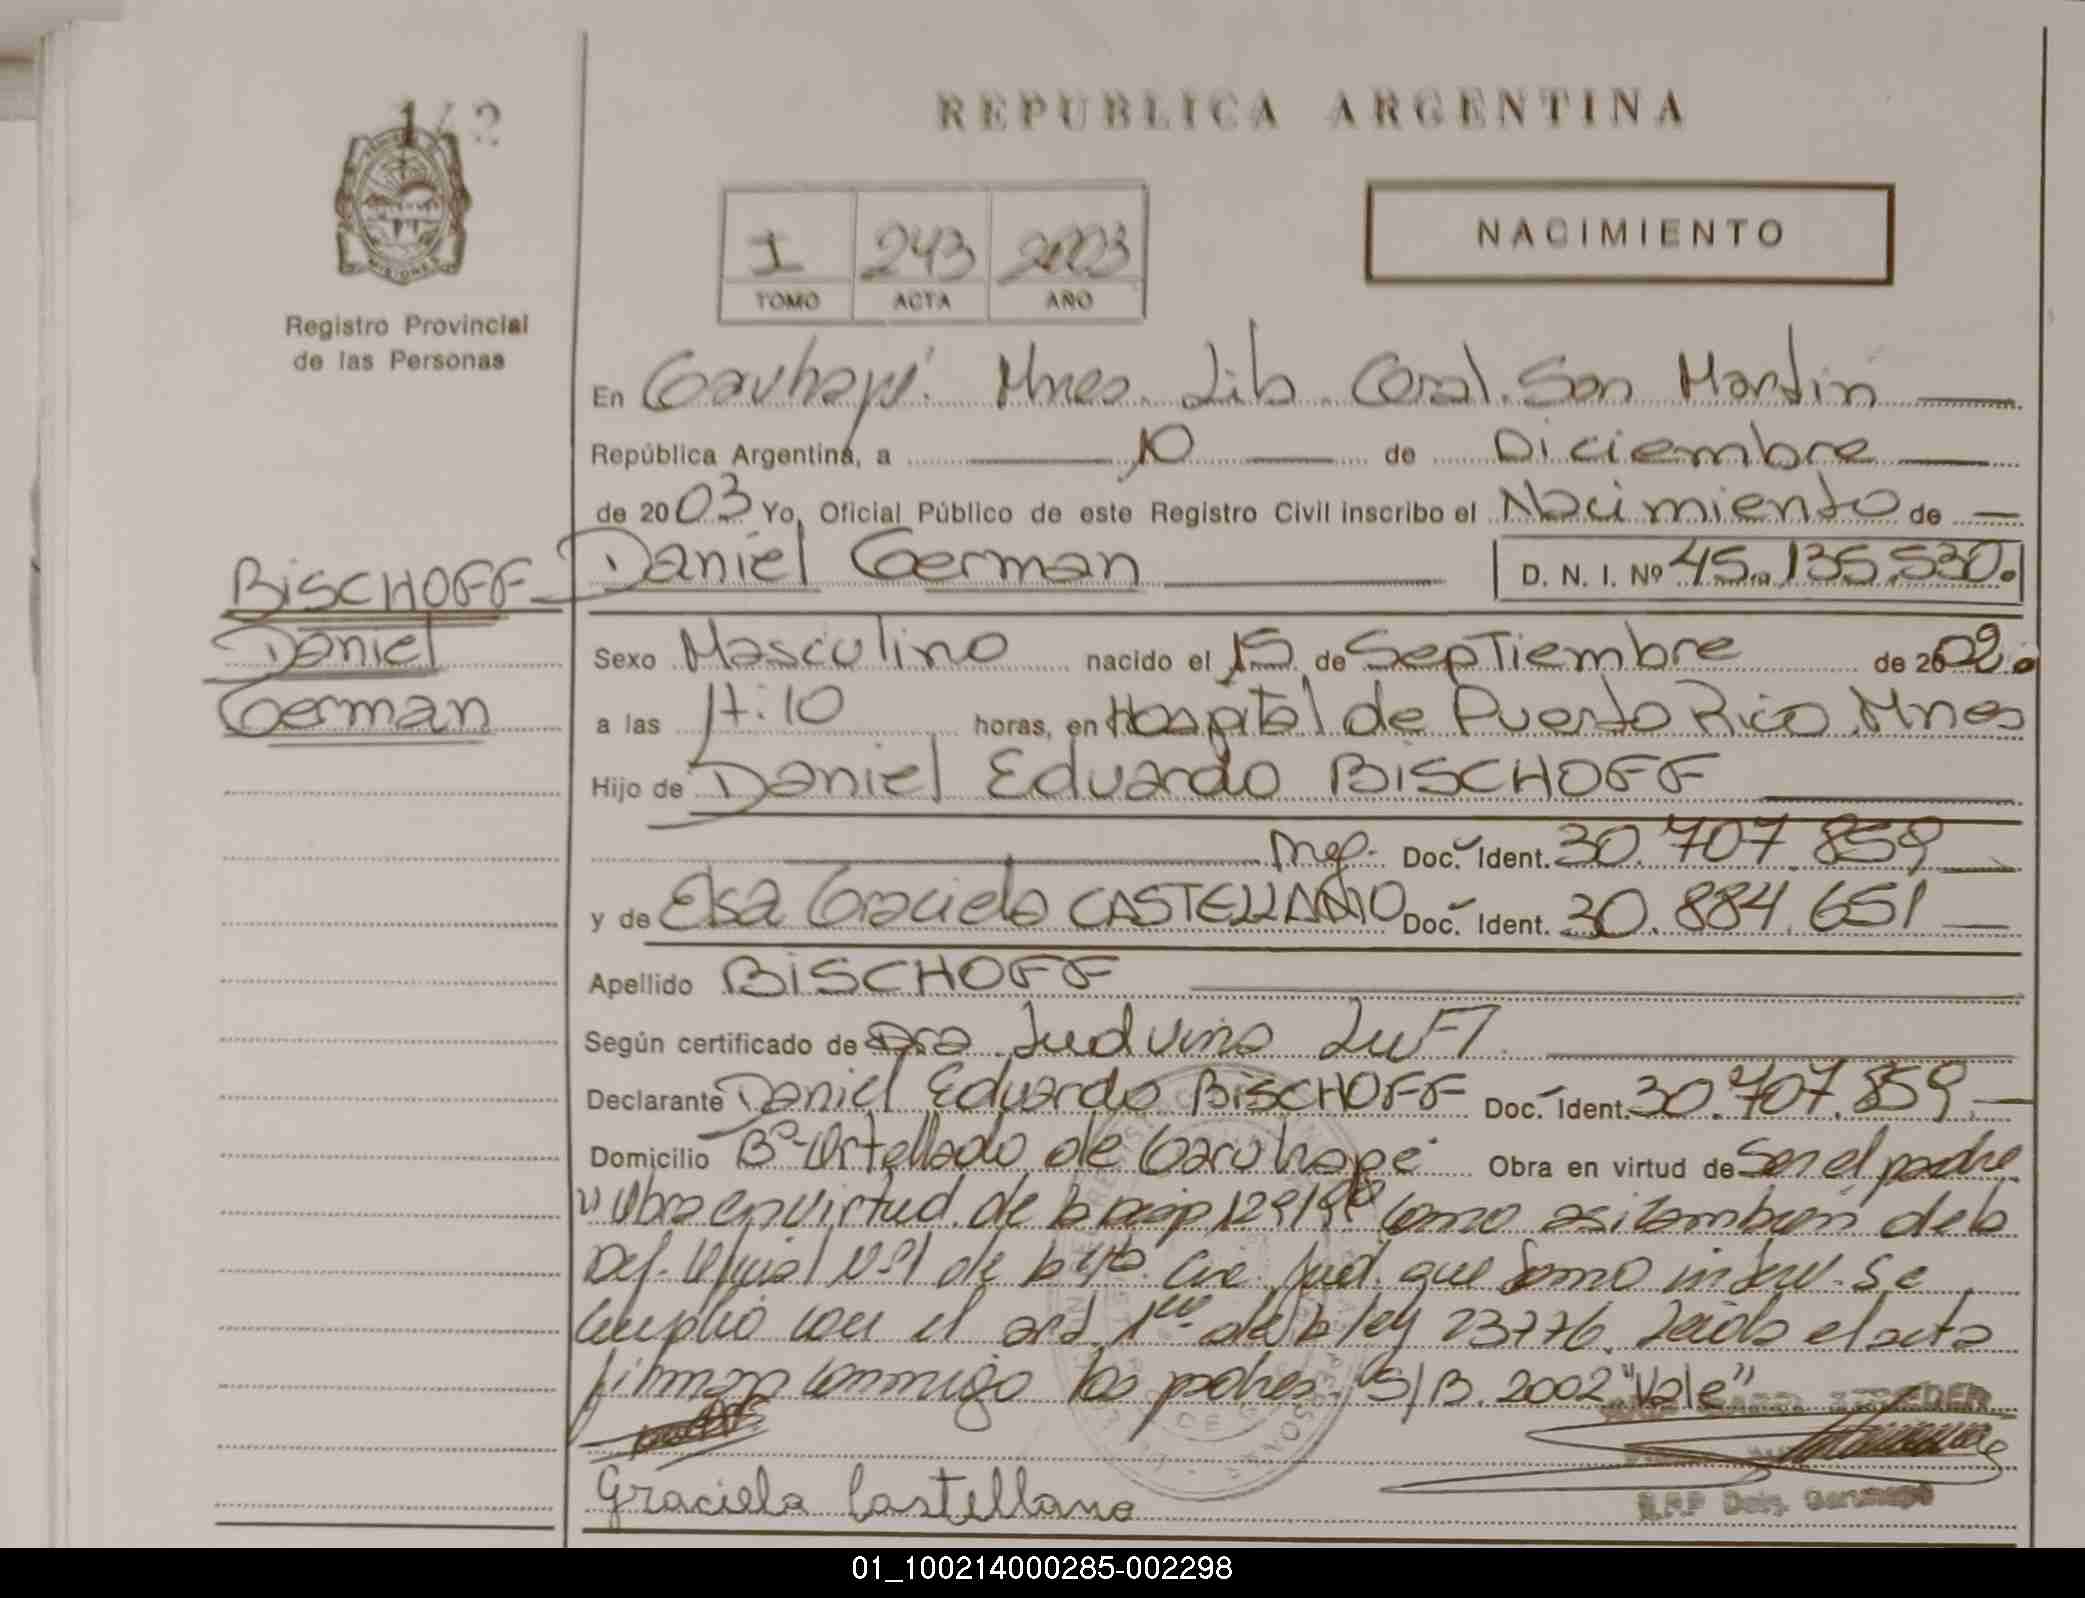 142
REPUBLICA ARGENTINA
MISIONES
Registro Provincial
de las Personas
I 243 2003
TOMO ACTA AÑO
NACIMIENTO
En Garuhapé Mnes. Lib. Gral. San Martín
República Argentina, a 10 de Diciembre
de 2003 Yo, Oficial Público de este Registro Civil inscribo el Nacimiento de
Daniel German D. N. I. Nº 45.135.530.
BISCHOFF
Daniel
German
Sexo Masculino nacido el 15 de Septiembre de 2002.
a las horas, en Hospital de Puerto Rico Mnes
Hijo de Daniel Eduardo BISCHOFF
Doc. Ident. 30.707.859
y de Elsa Graciela CASTELLANO Doc. Ident. 30.884.651
Apellido BISCHOFF
Según certificado de Ludvina Luft
Declarante Daniel Eduardo BISCHOFF Doc. Ident. 30.707.859
Domicilio Bº Ortellado de Garuhapé Obra en virtud de Ser el padre
Obra en virtud de la como asi tambien de la
Def. Oficial Nº1 de la 4ta. Circ. Jud. que tomo interv. Se
Cumplió con el art. 1ro de la ley 23776. Leida el acta
firman conmigo los padres. S/B. 2002 "Vale"
Graciela Castellano
01_100214000285-002298